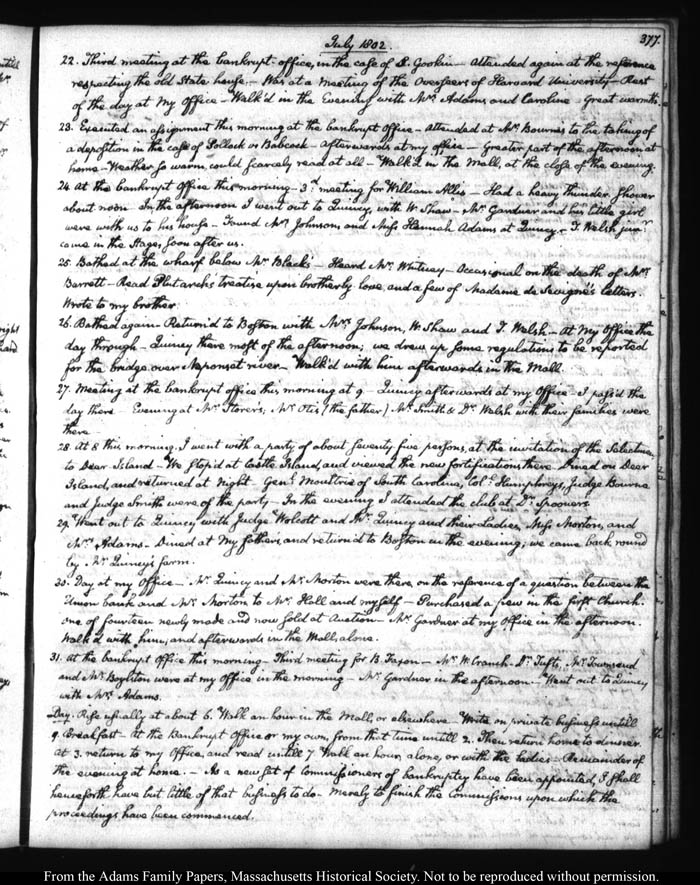 July 1802.
377.
22. Third meeting at the bankrupt-office, in the case of D. Gookin — Attended again at the reference
respecting the old State house. — Was at a meeting of the Overseers of Harvard University — Rest
of the day at my Office — Walk'd in the Evening with Mrs Adams, and Caroline — Great warmth.
23. Executed an assignment this morning at the bankrupt Office — Attended at Mr Bourne's to the taking of
a deposition in the case of Pollock vs Babcock — afterwards at my office — Greater part of the afternoon at
home — Weather so warm, could scarcely read at all — Walk'd in the Mall, at the close of the evening.
24. At the bankrupt Office this morning — 3d meeting for William Allis — Had a heavy thunder shower
about noon — In the afternoon I went out to Quincy, with W. Shaw — Mr Gardner and his little girl
were with us to his house — Found Mrs Johnson, and Miss Hannah Adams at Quincy — T. Welsh junr
came in the Stage, soon after us.
25. Bathed at the wharf below Mr Black's — Heard Mr Whitney — Occasional on the death of Mrs
Barrett — Read Plutarch's treatise upon brotherly love, and a few of Madame de Sevigné's letters.
Wrote to my brother.
26. Bathed again — Return'd to Boston with Mrs Johnson, W. Shaw and T. Welsh — At my Office the
day through — Quincy there most of the afternoon; we drew up some regulations to be reported
for the bridge over Neponset river — Walk'd with him afterwards in the Mall.
27. Meeting at the bankrupt office this morning at 9 — Quincy afterwards at my Office — I pass'd the
day there Evening at Mr Storer's; Mr Otis (the father) Mr Smith & Dr Welsh with their families were
there
28. At 8 this morning, I went with a party of about seventy five persons, at the invitation of the Selectmen,
to Deer Island — We stop'd at Castle Island, and viewed the new fortifications there — Dined on Deer
Island, and returned at Night — Genl Moultrie of South Carolina, Coll Humphreys, Judge Bourne
and Judge Smith were of the party — In the evening I attended the club at Dr Spooner's
29. Went out to Quincy with Judge Wolcott and Mr Quincy and their Ladies, Miss Morton, and
Mrs Adams — Dined at my father's, and return'd to Boston in the evening; we came back round
by Mr Quincy's farm.
30. Day at my Office — Mr Quincy and Mr Morton were there, on the reference of a question between the
Union bank and Mr Morton to Mr Hall and myself — Purchased a pew in the first Church.
one of fourteen newly made and now sold at Auction — Mr Gardner at my Office in the afternoon.
Walk'd with him, and afterwards in the Mall, alone.
31. At the bankrupt Office this morning — Third meeting for B. Faxon — Mr W. Cranch — Dr Tufts, Mr Townsend
and Mr Boylston were at my Office in the morning — Mr Gardner in the afternoon. — Went out to Quincy
with Mrs Adams.
Day. Rise usually at about 6. Walk an hour in the Mall, or elsewhere — Write on private business untill
9. Breakfast — At the Bankrupt Office or my own, from that time untill 2. Then return home to dinner.
At 3. return to my Office, and read untill 7. Walk an hour, alone, or with the ladies — Remainder of
the evening at home. — As a new set of Commissioners of bankruptcy have been appointed, I shall
henceforth have but little of that business to do — Merely to finish the Commissions upon which the
proceedings have been commenced.
From the Adams Family Papers, Massachusetts Historical Society. Not to be reproduced without permission.